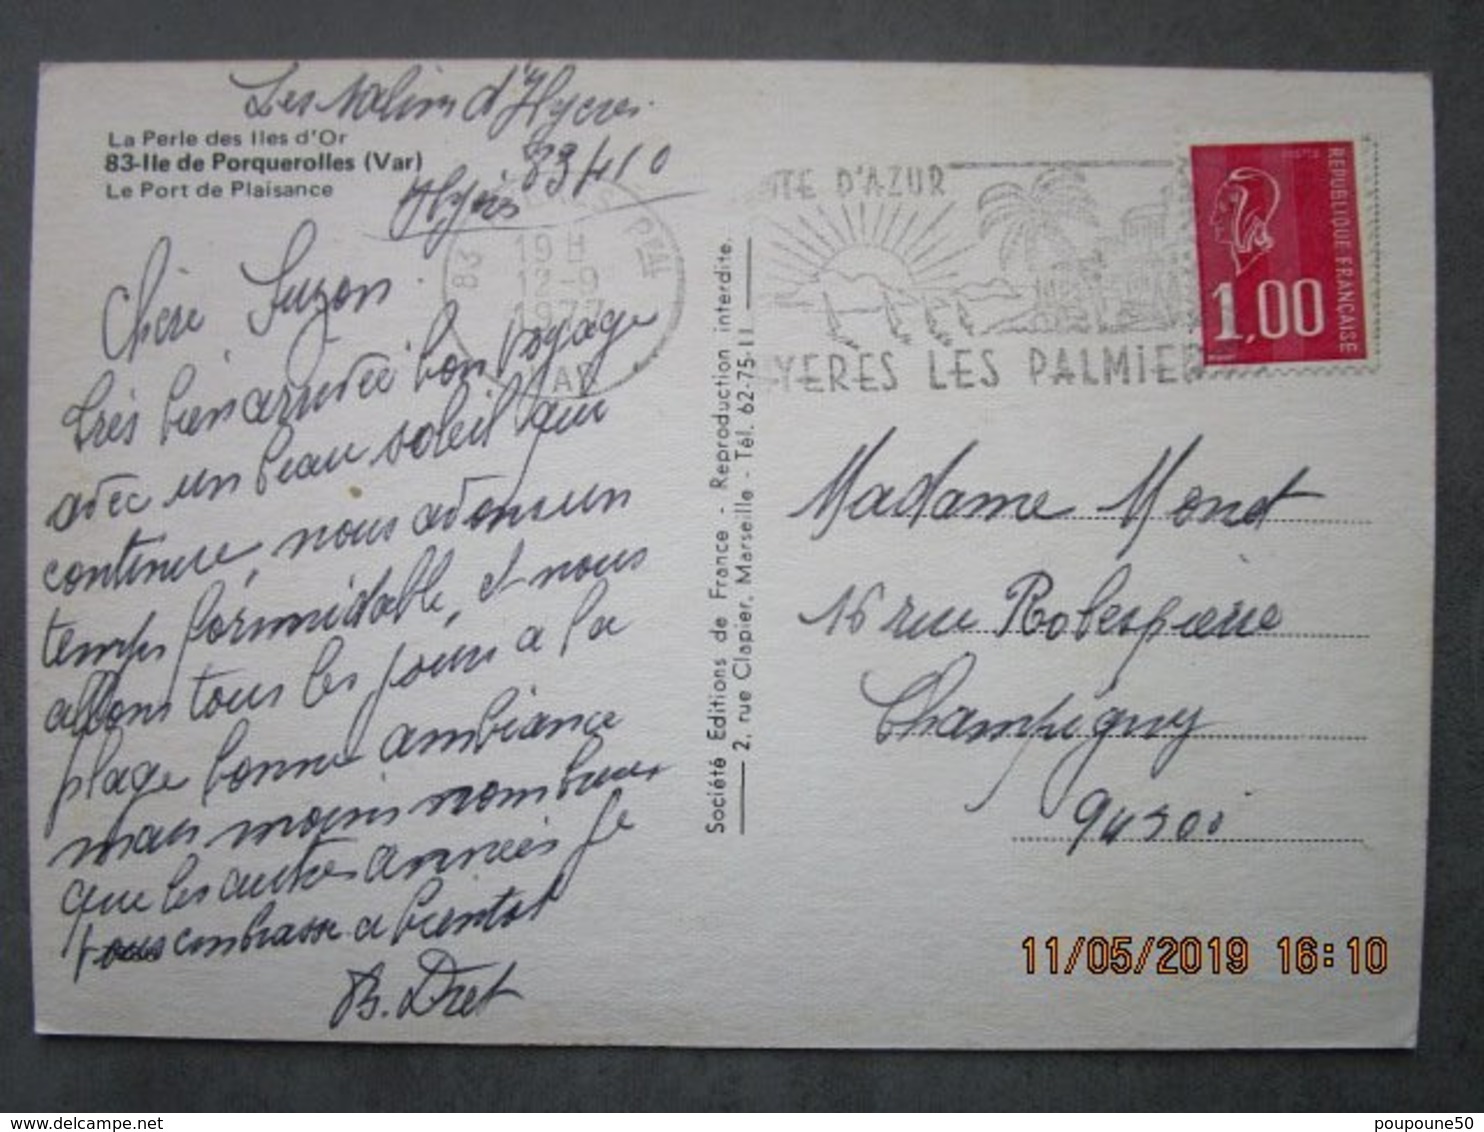 Les Salins d'Hyeres
La Perle des Iles d'Or
83-Ile de Porquerolles (Var)
Le Port de Plaisance
83410
Hyères
Chère Suzon
très bien arrivée bon voyage
avec un beau soleil qui
continue, nous avons un
temps formidable, et nous
allons tous les jours a la
plage bonne ambiance
mais moins nombreux
que les autres années je
vous embrasse a bientot
B. Dret
83
19 H
12-9
1977
VAR
Société Editions de France - Reproduction interdite.
2, rue Clapier, Marseille - Tél. 62-75-11
COTE D'AZUR
HYERES LES PALMIERS
REPUBLIQUE FRANÇAISE
POSTES
1,00
Madame Monet
16 rue Robespierre
Champigny
94500
11/05/2019 16:10
poupoune50